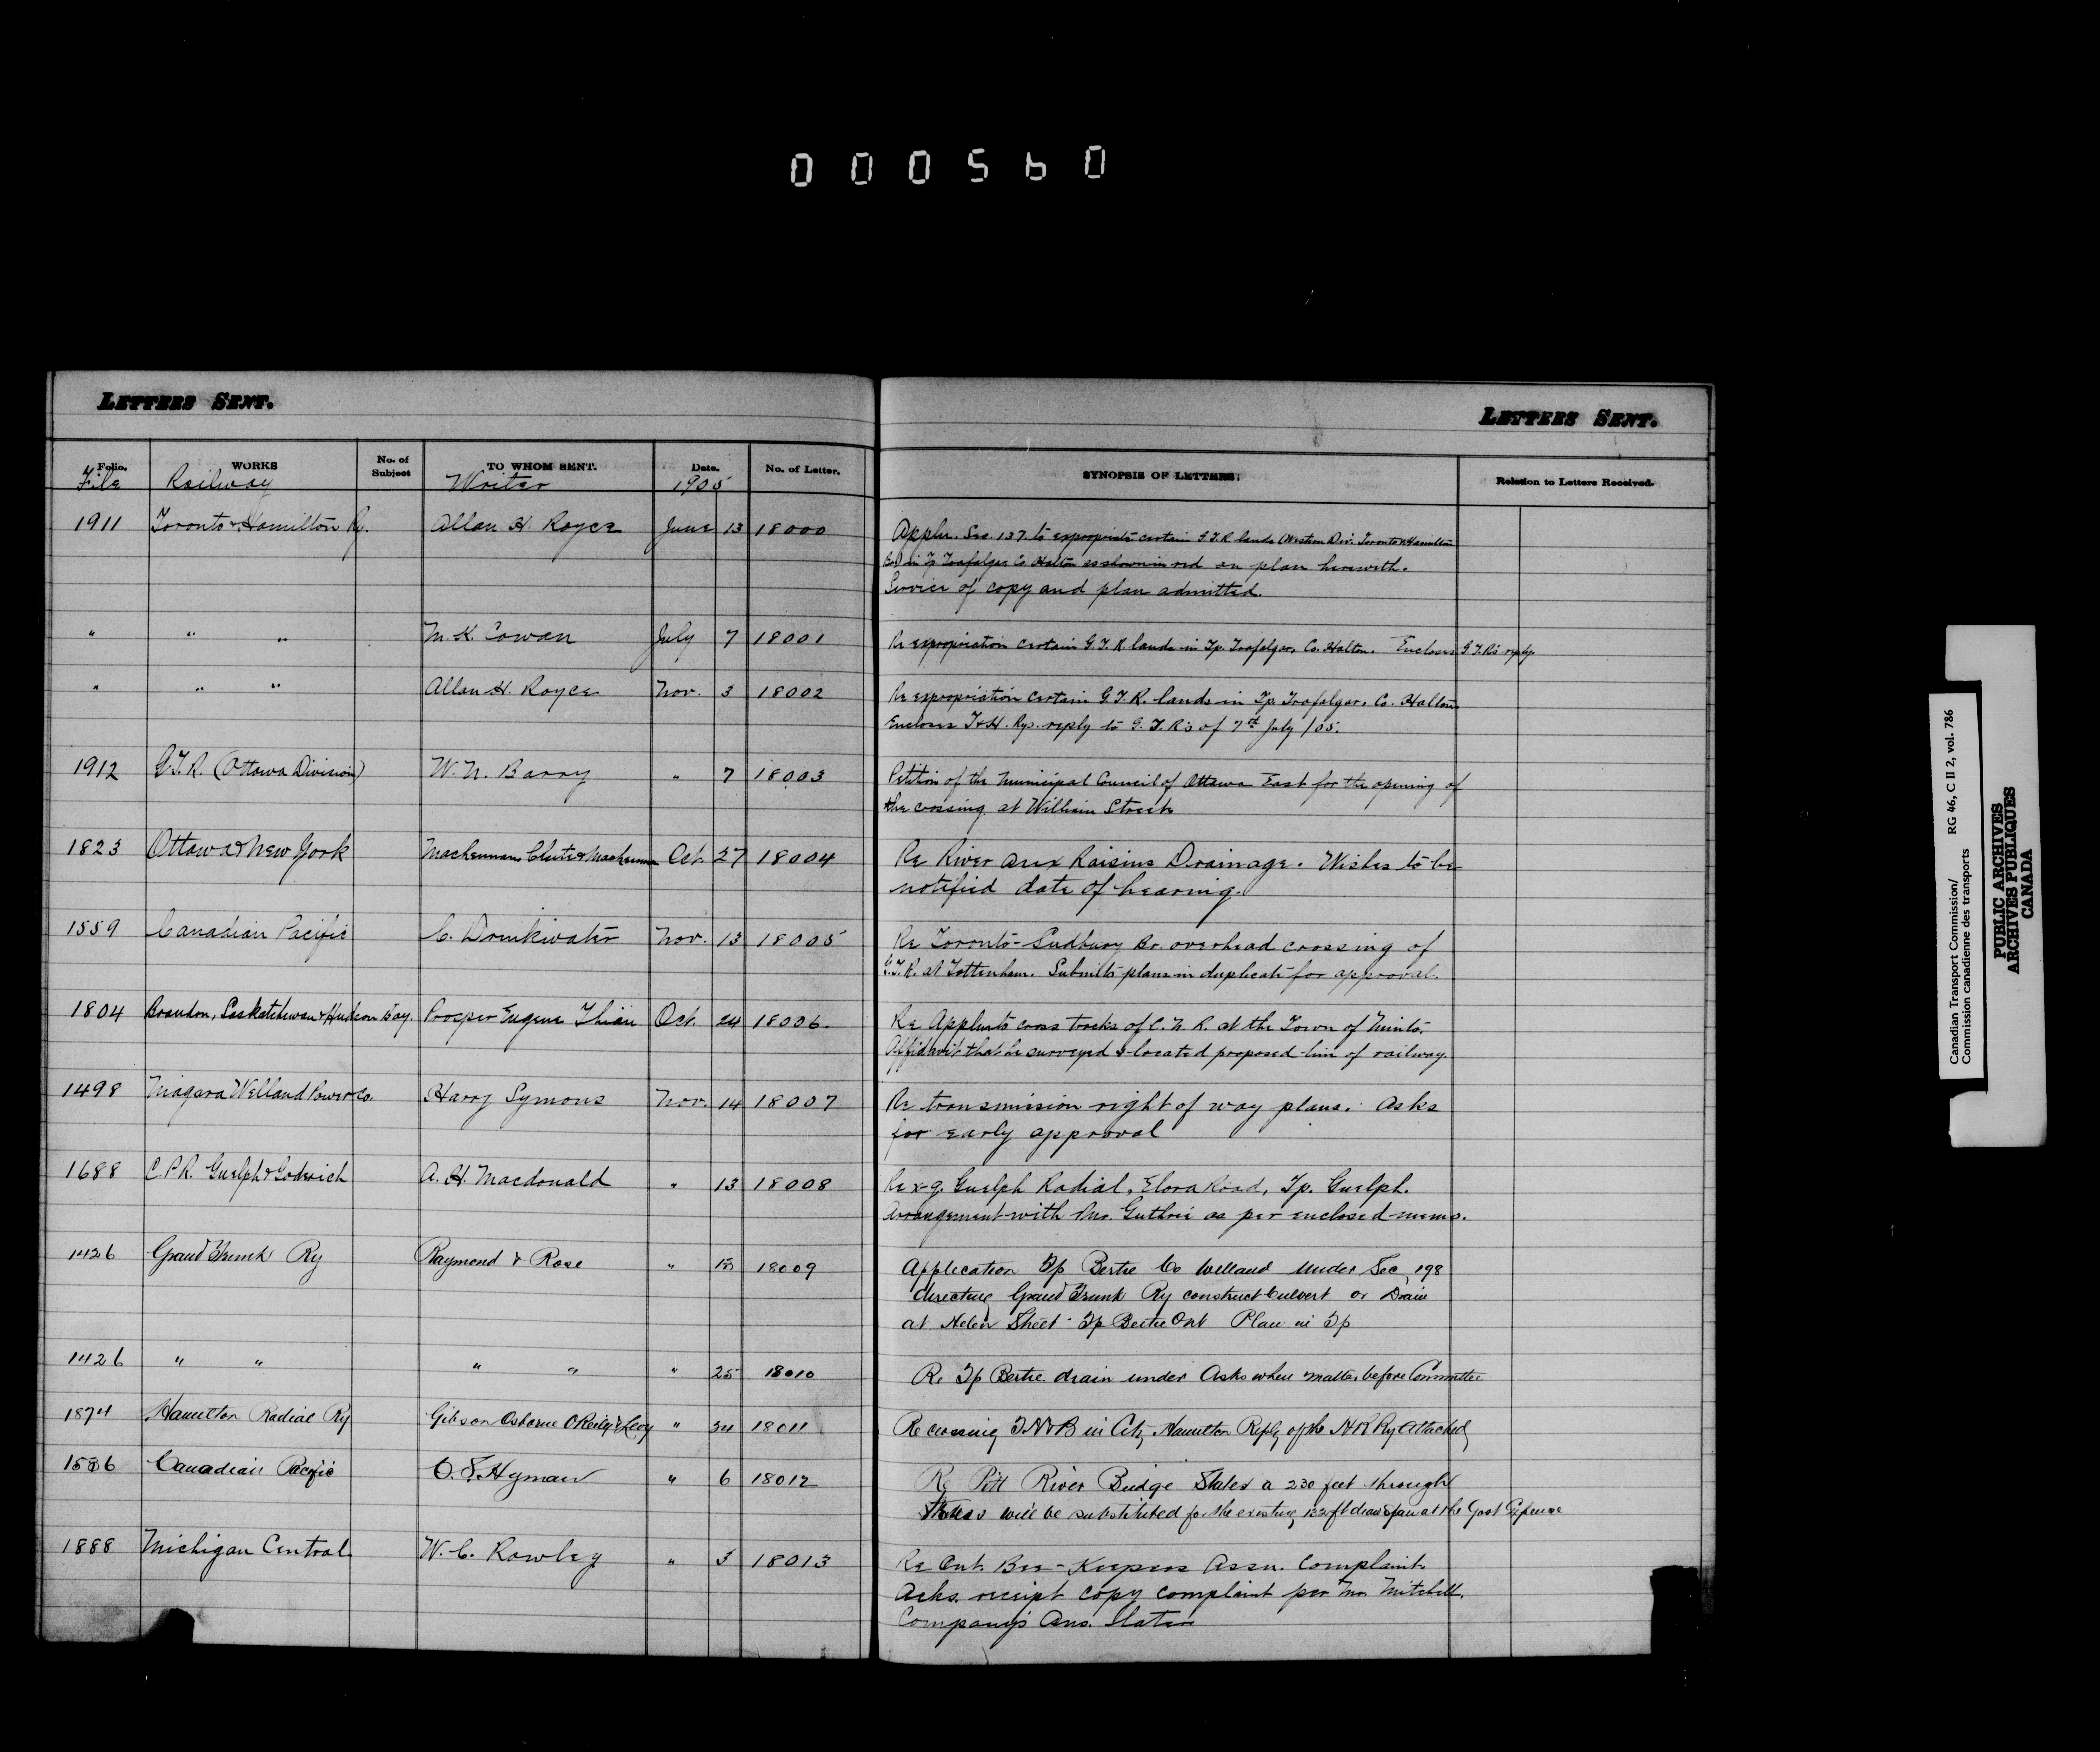 000560
LETTERS SENT.
LETTERS SENT.
Folio. WORKS No. of Subject TO WHOM SENT. Date. No. of Letter. SYNOPSIS OF LETTERS. Relation to Letters Received.
File Railway Writer 1905
1911 Toronto & Hamilton Ry. Allan H. Royce June 13 18000 Appln. Sec. 137 to expropriate certain G.T.R. lands (Western Div. Toronto & Hamilton
in Tp Trafalgar Co Halton as shown in red on plan herewith.
Service of copy and plan admitted.
" " " M. K. Cowan July 7 18001 Re expropriation certain G.T.R. lands in Tp. Trafalgar, Co. Halton. Encloses G.T.R's reply.
" " " Allan H. Royce Nov. 3 18002 Re expropriation certain G.T.R. lands in Tp. Trafalgar, Co. Halton
Encloses T&H. Rys. reply to G.T.R's of 7th July /05.
1912 G.T.R. (Ottawa Division) W. N. Barry " 7 18003 Petition of the Municipal Council of Ottawa East for the opening of
the crossing at William Street
1823 Ottawa & New York Maclennan, Cline & Maclennan Oct. 27 18004 Re River aux Raisins Drainage. Wishes to be
notified date of hearing.
1559 Canadian Pacific C. Drinkwater Nov. 13 18005 Re Toronto-Sudbury Br. overhead crossing of
G.T.R. at Tottenham. Submits plans in duplicate for approval.
1804 Brandon, Saskatchewan & Hudson Bay. Prosper Eugene Thian Oct. 24 18006 Re Appln to cross tracks of C.N.R. at the Town of Minto.
Affidavit that he surveyed & located proposed line of railway.
1498 Niagara Welland Power Co. Harry Symons Nov. 14 18007 Re transmission right of way plans. Asks
for early approval
1688 C.P.R. Guelph & Goderich A. H. Macdonald " 13 18008 Re x-g. Guelph Radial, Elora Road, Tp. Guelph.
Arrangement with Mr. Guthrie as per enclosed memo.
1426 Grand Trunk Ry Raymond & Rose " 18009 Application Tp Bertie Co Welland under Sec. 198
directing Grand Trunk Ry construct Culvert or Drain
at Helen Street Tp Bertie Ont Plan in Tp
1426 " " " " " 25 18010 Re Tp Bertie drain under Asks when matter before Committee
1874 Hamilton Radial Ry Gibson Osborne O'Reilly & Levy " 24 18011 Re crossing T H & B in City Hamilton Reply of the H R Ry attached
Canadian Pacific C. S. Hyman " 6 18012 Re Pitt River Bridge States a 230 feet through
truss will be substituted for the existing ft draw span at the Govt Expense
1888 Michigan Central W. C. Rowley " 3 18013 Re Ont. Bee-Keepers Assn. Complaint.
Acks. receipt copy complaint per Mr. Mitchell.
Company's Ans. States
Canadian Transport Commission/ RG 46, C II 2, vol. 786
Commission canadienne des transports
PUBLIC ARCHIVES
ARCHIVES PUBLIQUES
CANADA